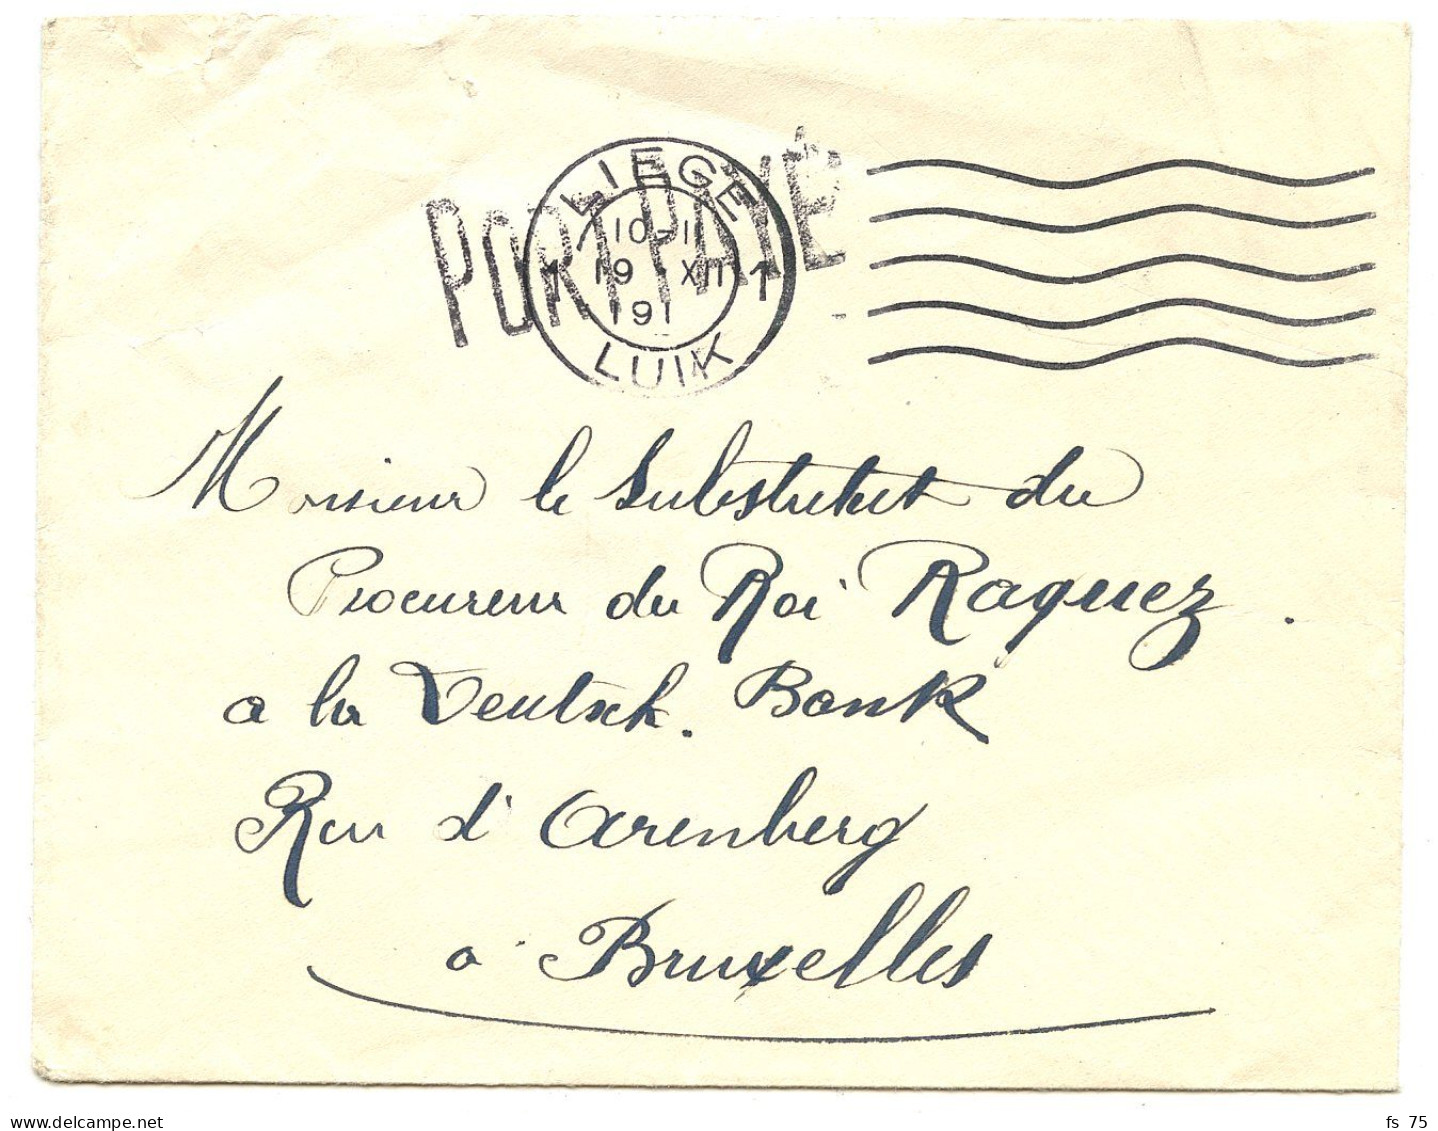 PORT PAYÉ
LIEGE
10-11
19 XII
191
1 1
LUIK
Monsieur le Substitut du
Procureur du Roi Raquez.
a la Deutsch. Bank
Rue d'Arenberg
a Bruxelles
delcampe.net
fs_75